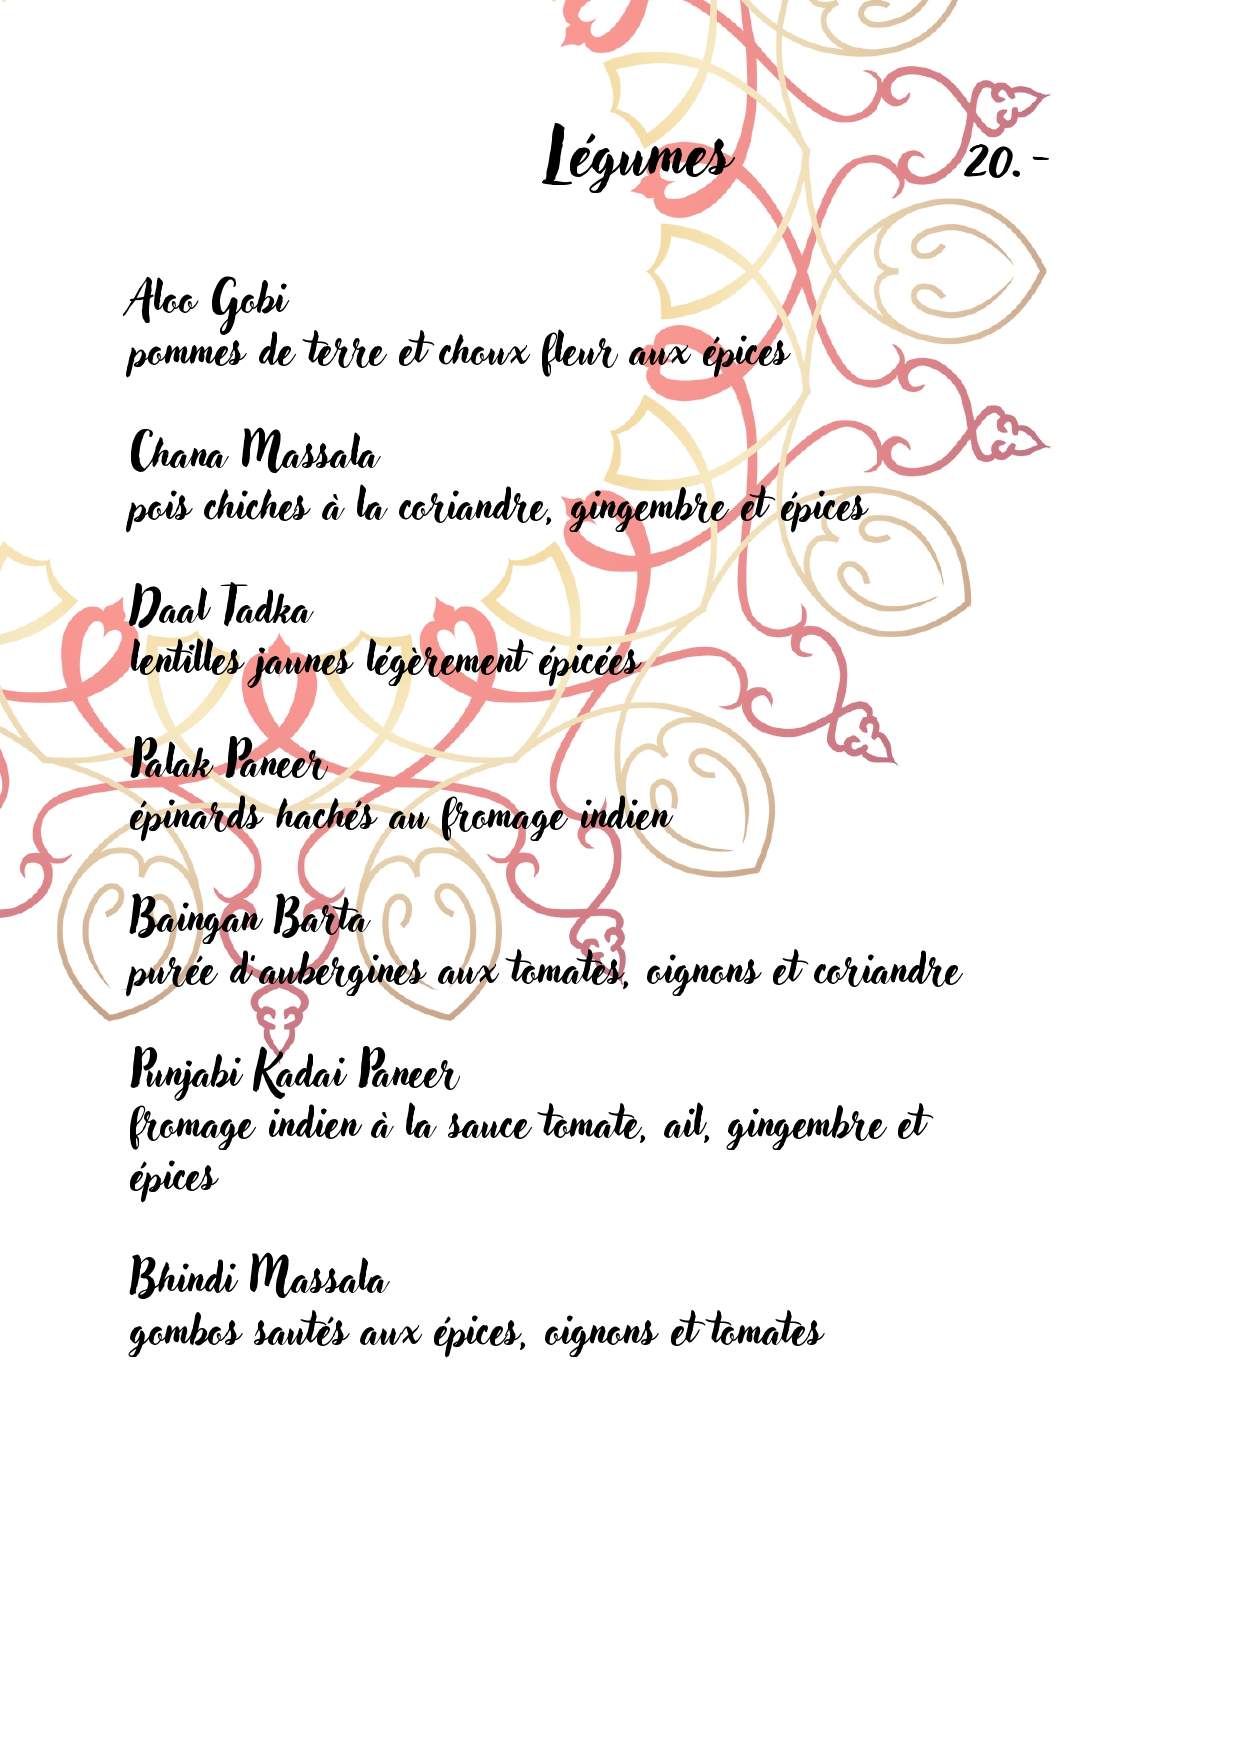 Légumes 20.-
Aloo Gobi
pommes de terre et choux fleur aux épices
Chana Massala
pois chiches à la coriandre, gingembre et épices
Daal Tadka
lentilles jaunes légèrement épicées
Palak Paneer
épinards hachés au fromage indien
Baingan Barta
purée d'aubergines aux tomates, oignons et coriandre
Punjabi Kadai Paneer
fromage indien à la sauce tomate, ail, gingembre et
épices
Bhindi Massala
gombos sautés aux épices, oignons et tomates